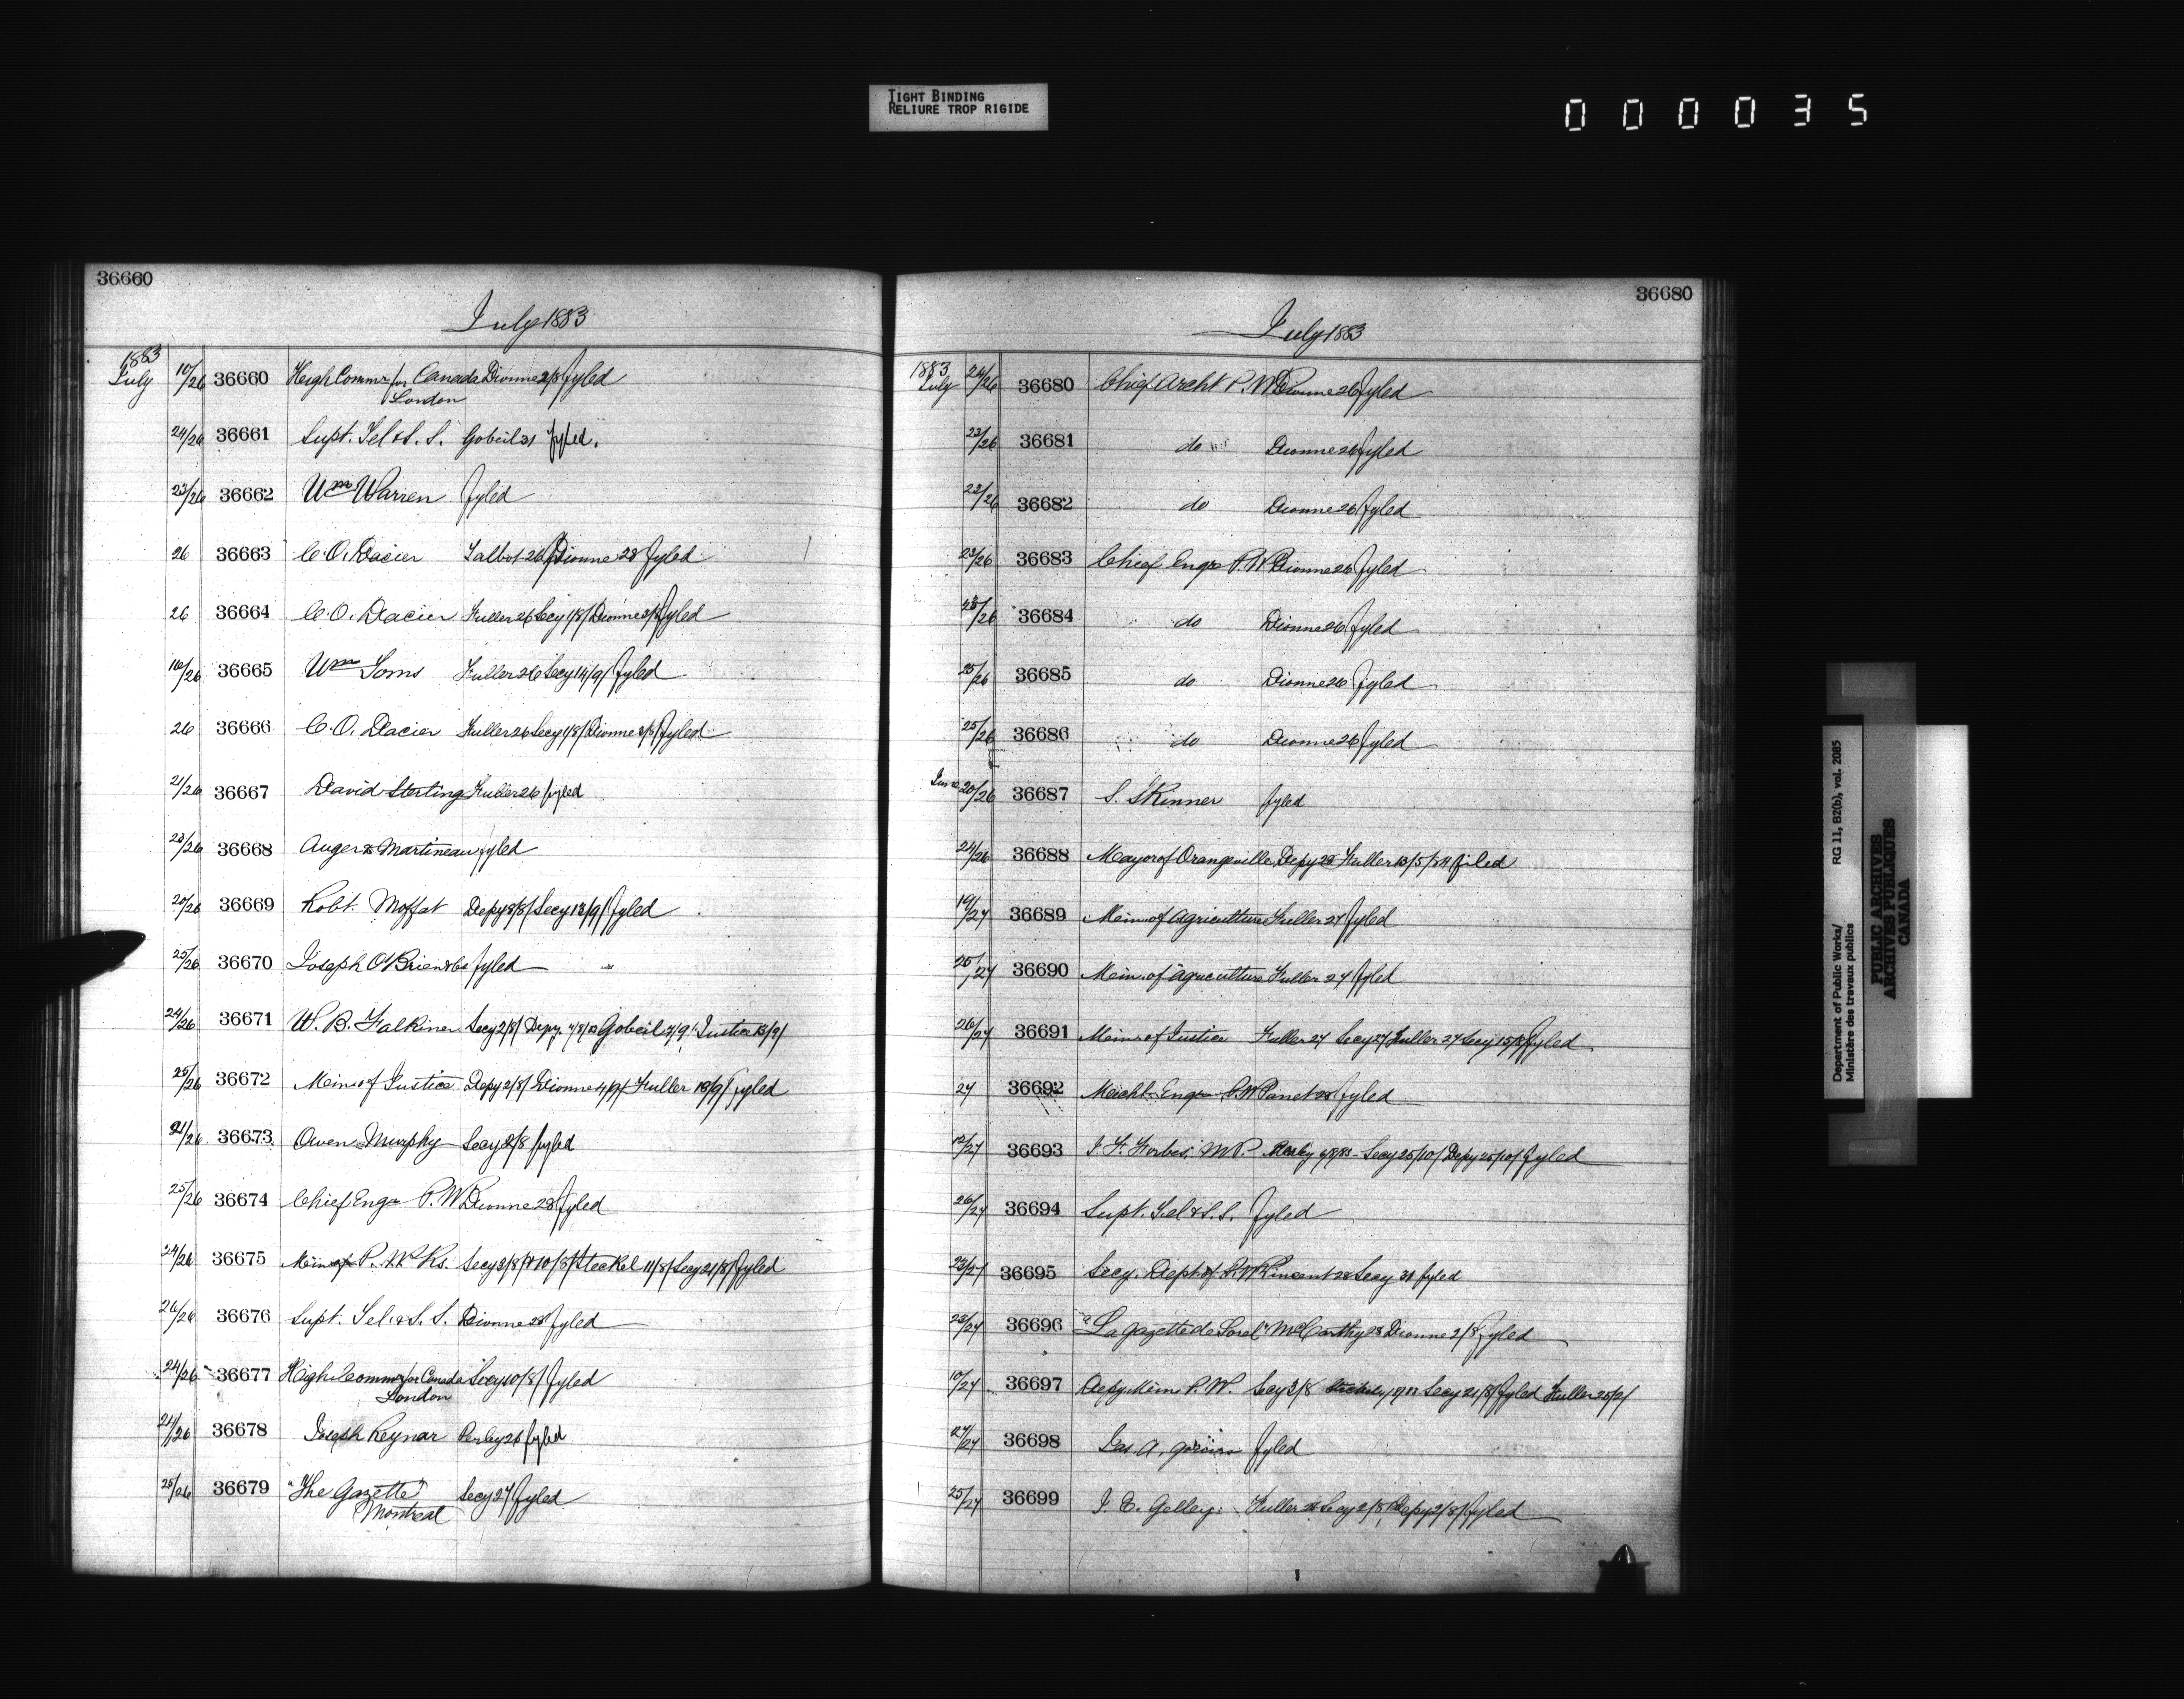 TIGHT BINDING
RELIURE TROP RIGIDE
000035
36660
July 1883
1883
July 10/26 36660 High Commr for Canada Dionne 2/8 fyled
London
24/26 36661 Supt. Tel & S. S. Gobeil 31 fyled.
23/26 36662 Wm Warren fyled
26 36663 C. O. Dacier Talbot 26 Dionne 28 fyled
26 36664 C. O. Dacier Fuller 26 Secy 1/8/ Dionne 3/8/ fyled
16/26 36665 Wm Toms Fuller 26 Secy 14/9/ fyled
26 36666 C. O. Dacier Fuller 26 Secy 1/8/ Dionne 3/8/ fyled
21/26 36667 David Sterling Fuller 26 fyled
23/26 36668 Auger & Martineau fyled
20/26 36669 Robt. Moffat Depy 8/8/ Secy 13/9/ fyled
25/26 36670 Joseph O'Brien & Co fyled
24/26 36671 W. B. Falkiner Secy 2/8/ Depy. Gobeil 7/9/ Justice 13/9/
25/26 36672 Min. of Justice Depy 2/8/ Dionne 4/9/ Fuller 19/9/ fyled
21/26 36673 Owen Murphy Secy 2/8 fyled
25/26 36674 Chief Engr P. W Dionne 28 fyled
24/26 36675 Min of P. Wks. Secy 3/8/ 10/8/ Steckel 11/8/ Secy 21/8/ fyled
26/26 36676 Supt. Tel. & S. S. Dionne 28 fyled
24/26 36677 High Commr for Canada Secy 10/8/ fyled
London
24/26 36678 Joseph Reynar Perley 26 fyled
25/26 36679 "The Gazette" Secy 27 fyled
Montreal
36680
July 1883
1883
July 24/26 36680 Chief Archt P. W Dionne 26 fyled
23/26 36681 do Dionne 26 fyled
23/26 36682 do Dionne 26 fyled
23/26 36683 Chief Engr P. W Dionne 26 fyled
25/26 36684 do Dionne 26 fyled
25/26 36685 do Dionne 26 fyled
25/26 36686 do Dionne 26 fyled
June 20/26 36687 S. Skinner fyled
24/26 36688 Mayor of Orangeville Depy 28 Fuller 13/5/84 filed
19/27 36689 Min. of Agriculture Fuller 27 fyled
25/27 36690 Min. of Agriculture Fuller 27 fyled
26/27 36691 Min. of Justice Fuller 27 Secy 27 Fuller 27 Secy 15/8/ fyled
27 36692 Mechl. Engr P. W Panet 28 fyled
12/27 36693 J. F. Forbes. M.P. Perley Secy 25/10/ Depy 25/10/ fyled
26/27 36694 Supt. Tel & S. S. fyled
23/27 36695 Secy. Dept of P. W Vincent 28 Secy 31 fyled
23/27 36696 "La Gazette de Sorel" McCarthy 28 Dionne 2/8 fyled
10/27 36697 Depy Min P. W. Secy 3/8 Secy 21/8/ fyled Fuller 25/9/
27/27 36698 Jas. A. fyled
25/27 36699 J. E. Gelley. Fuller 28 Secy 2/8/ Depy 2/8/ fyled
Department of Public Works/ RG 11, B2(b), vol. 2085
Ministère des travaux publics
PUBLIC ARCHIVES
ARCHIVES PUBLIQUES
CANADA